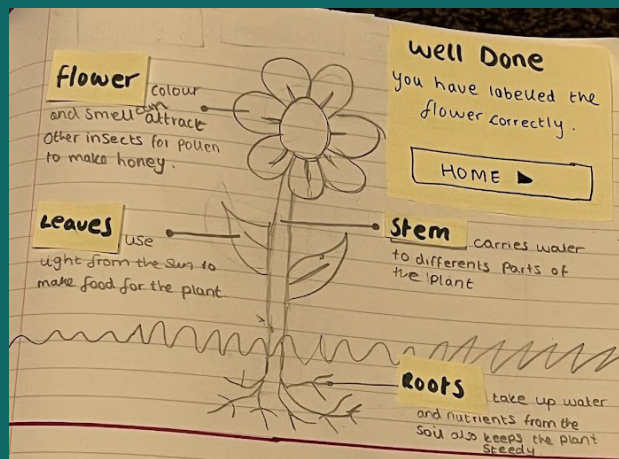 Flower colour
and smell can attract
other insects for pollen
to make honey.
Well Done
you have labelled the
flower correctly.
HOME ▶
Leaves use
light from the sun to
make food for the plant.
Stem carries water
to differents parts of
the plant
Roots take up water
and nutrients from the
soil also keeps the plant
steedy